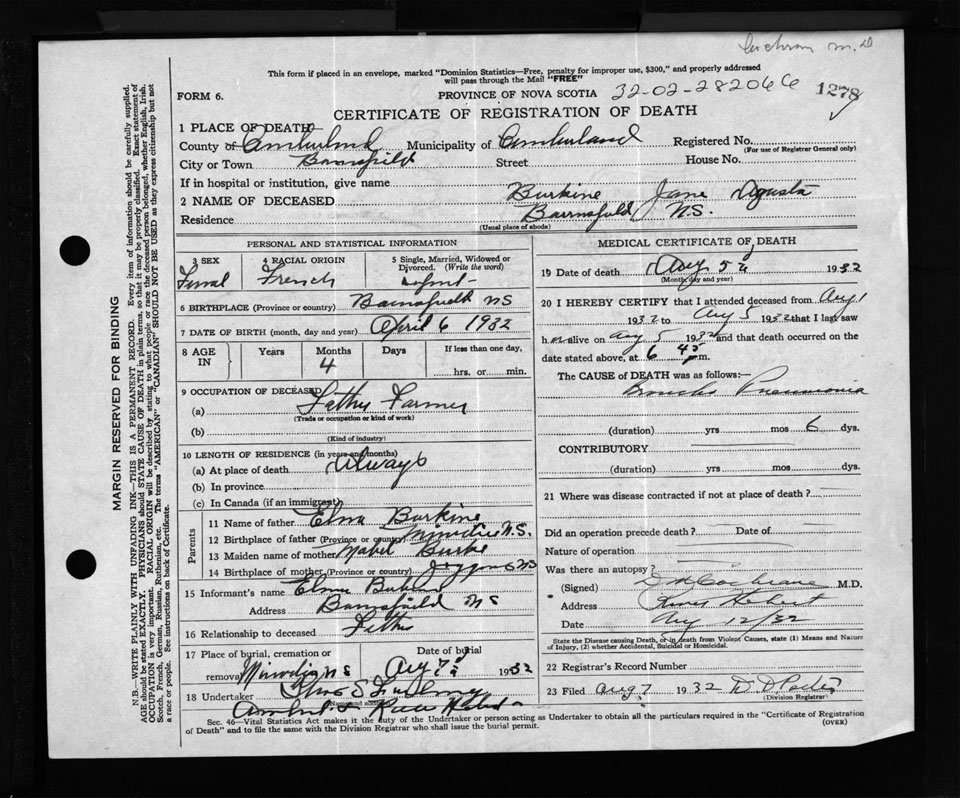 M.D
This form if placed in an envelope, marked "Dominion Statistics—Free, penalty for improper use, $300," and properly addressed
will pass through the Mail "FREE"
FORM 6. PROVINCE OF NOVA SCOTIA 32-02-282066 1278
CERTIFICATE OF REGISTRATION OF DEATH
1 PLACE OF DEATH
County of Cumberland Municipality of Cumberland Registered No.
(For use of Registrar General only)
City or Town Barnsfield Street House No.
If in hospital or institution, give name
2 NAME OF DECEASED Burkine Jane Agusta
Residence Barnsfield N.S.
(Usual place of abode)
PERSONAL AND STATISTICAL INFORMATION
3 SEX 4 RACIAL ORIGIN 5 Single, Married, Widowed or
Divorced. (Write the word)
Femal French Infant
6 BIRTHPLACE (Province or country) Barnsfield NS
7 DATE OF BIRTH (month, day and year) April 6 1932
8 AGE IN Years Months Days If less than one day,
4 hrs. or min.
9 OCCUPATION OF DECEASED
(a) Father Farmer
(Trade or occupation or kind of work)
(b)
(Kind of industry)
10 LENGTH OF RESIDENCE (in years and months)
(a) At place of death Always
(b) In province
(c) In Canada (if an immigrant)
Parents
11 Name of father Burkine
12 Birthplace of father (Province or country) Minudie N.S.
13 Maiden name of mother Mabel Burke
14 Birthplace of mother (Province or country) Joggins NS
15 Informant's name
Address Barnsfield NS
16 Relationship to deceased Father
17 Place of burial, cremation or Date of burial
removal Minudie NS Aug 7 1932
18 Undertaker
(Name and address)
River Hebert
MEDICAL CERTIFICATE OF DEATH
19 Date of death Aug 5 1932
(Month, day and year)
20 I HEREBY CERTIFY that I attended deceased from Aug 1
1932 to Aug 5 1932 that I last saw
h alive on Aug 5 1932 and that death occurred on the
date stated above, at 6 45 p.m.
The CAUSE of DEATH was as follows:—
Broncho Pneumonia
(duration) yrs mos 6 dys.
CONTRIBUTORY
(duration) yrs mos dys.
21 Where was disease contracted if not at place of death?
Did an operation precede death? Date of
Nature of operation
Was there an autopsy?
(Signed) Cochrane M.D.
Address River Hebert
Date Aug 12/32
State the Disease causing Death, or in death from Violent Causes, state (1) Means and Nature
of Injury, (2) whether Accidental, Suicidal or Homicidal.
22 Registrar's Record Number
23 Filed Aug 7 1932
(Division Registrar)
Sec. 46—Vital Statistics Act makes it the duty of the Undertaker or person acting as Undertaker to obtain all the particulars required in the "Certificate of Registration
of Death" and to file the same with the Division Registrar who shall issue the burial permit. (OVER)
MARGIN RESERVED FOR BINDING
N.B.—WRITE PLAINLY WITH UNFADING INK—THIS IS A PERMANENT RECORD. Every item of information should be carefully supplied.
AGE should be stated EXACTLY. PHYSICIANS should STATE CAUSE OF DEATH in plain terms, so that it may be properly classified. Exact statement of
OCCUPATION is very important. RACIAL ORIGIN will be described by stating to what people or race the deceased person belonged, whether English, Irish,
Scotch, French, German, Russian, Ruthenian, etc. The terms "AMERICAN" or "CANADIAN" SHOULD NOT BE USED as they express citizenship but not
a race or people. See instructions on back of Certificate.